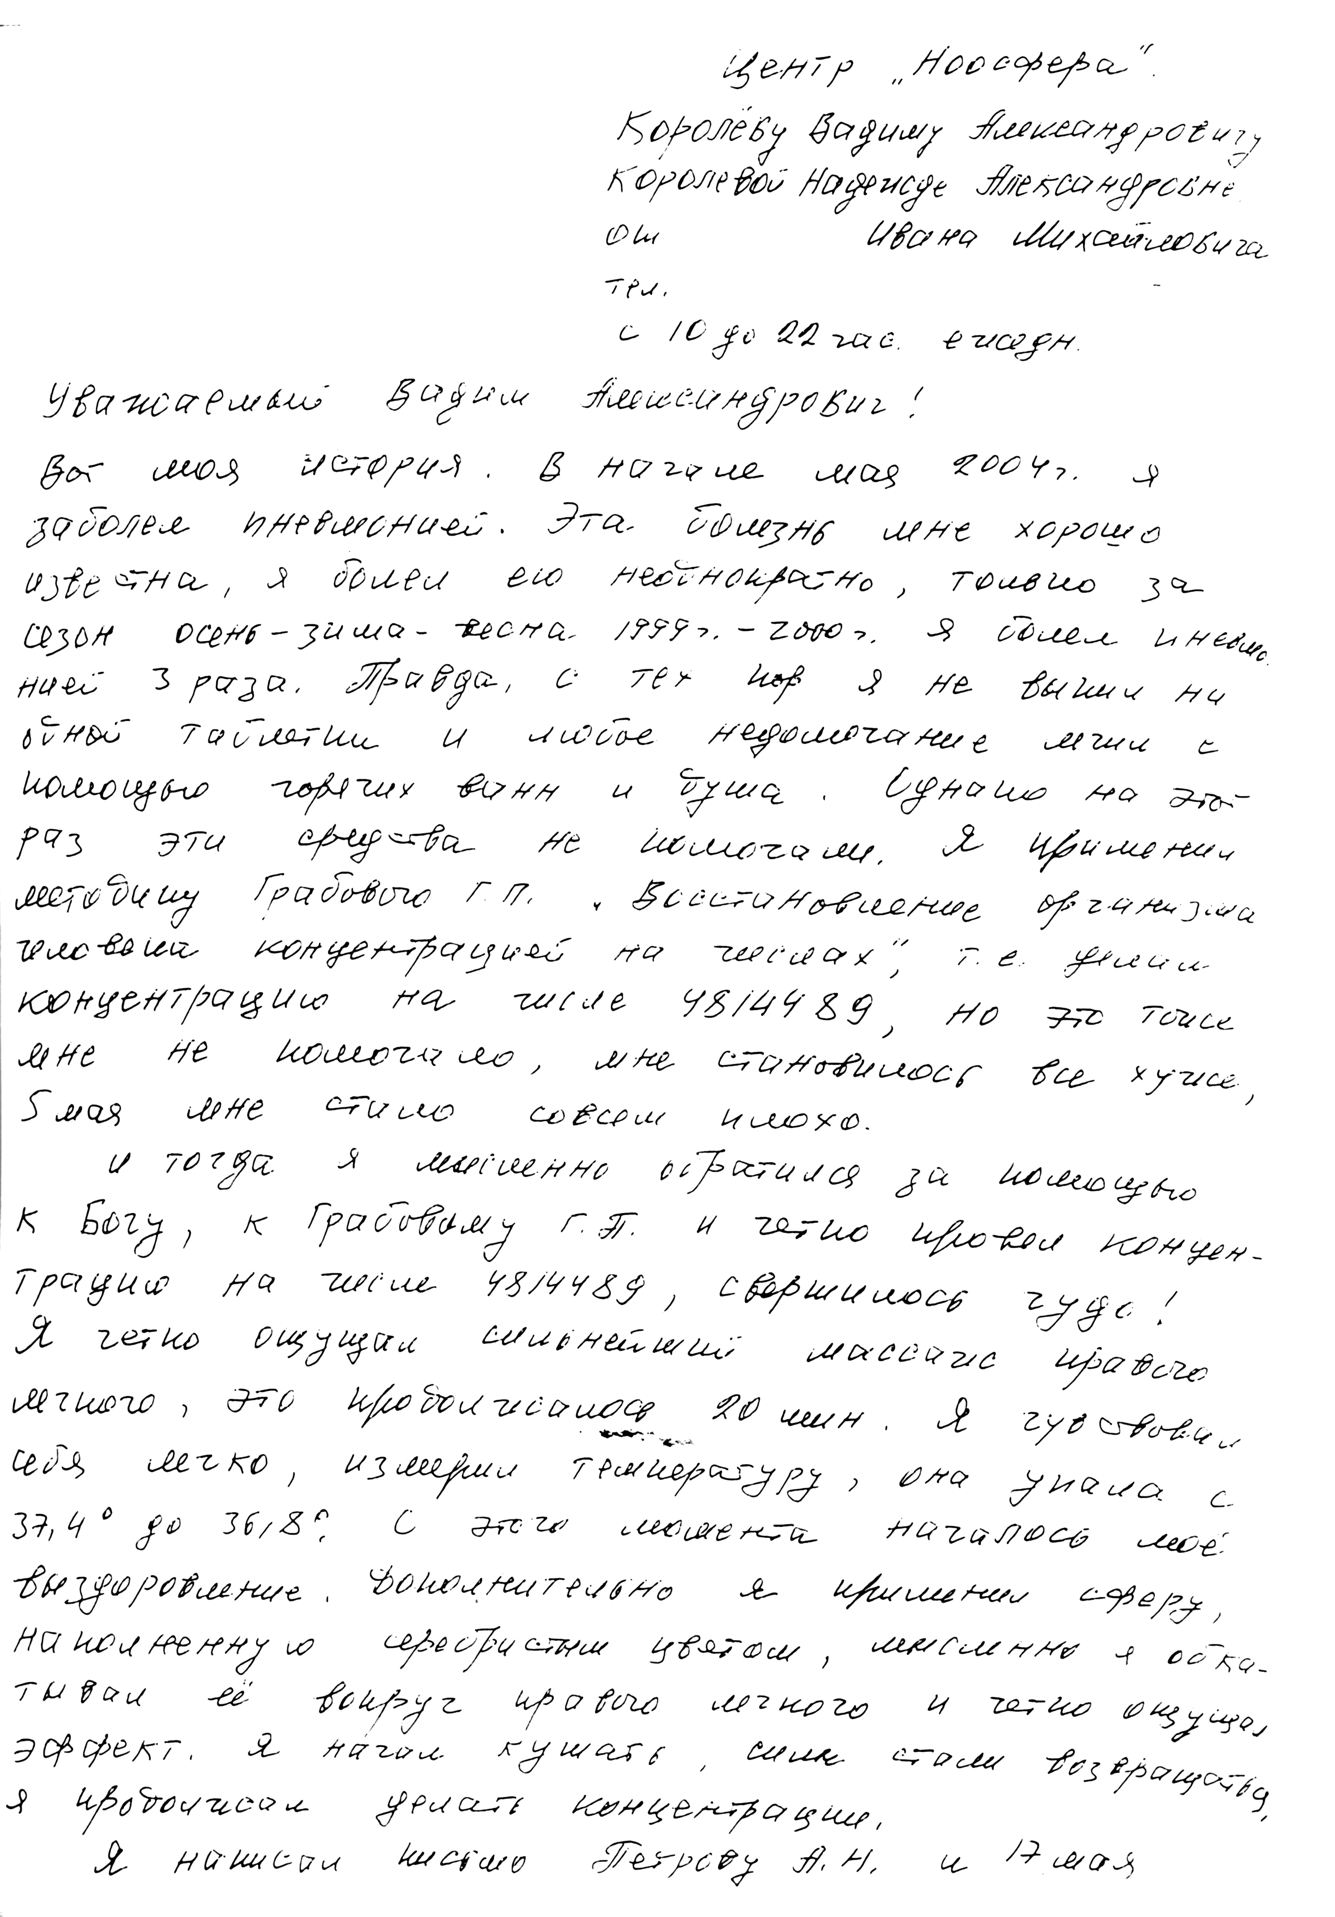 Центр „Ноосфера“.
Королёву Вадиму Александровичу
Королевой Надежде Александровне
от Ивана Михайловича
тел.
с 10 до 22 час. ежедн.
Уважаемый Вадим Александрович!
Вот моя история. В начале мая 2004г. я
заболел пневмонией. Эта болезнь мне хорошо
известна, я болел ею неоднократно, только за
сезон осень-зима-весна 1999г.-2000г. я болел пневмо
нией 3 раза. Правда, с тех пор я не выпил ни
одной таблетки и любое недомогание лечил с
помощью горячих ванн и душа. Однако на этот
раз эти средства не помогали. Я применил
методику Грабового Г.П. „Восстановление организма
человека концентрацией на числах“, т.е. делал
концентрацию на числе 4814489, но это тоже
мне не помогало, мне становилось все хуже,
5 мая мне стало совсем плохо.
И тогда я мысленно обратился за помощью
к Богу, к Грабовому Г.П. и четко провел концен-
трацию на числе 4814489, свершилось чудо!
Я четко ощущал сильнейший массаж правого
легкого, это продолжалось 20 мин. Я чувствовал
себя легко, измерил температуру, она упала с
37,4° до 36,8°. С этого момента началось моё
выздоровление. Дополнительно я применил сферу,
наполненную серебристым цветом, мысленно я обка-
тывал её вокруг правого легкого и четко ощущал
эффект. Я начал кушать, силы стали возвращаться,
я продолжал делать концентрации.
Я написал письмо Петрову А.Н. и 17 мая